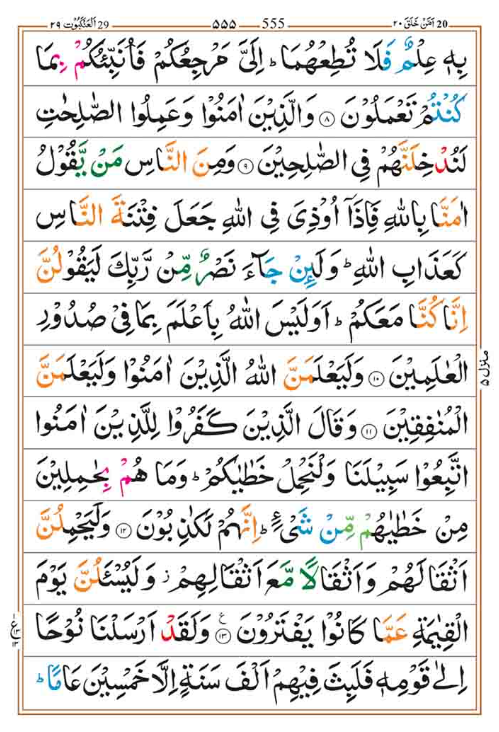 اَلْعَنْكَبُوْت ٢٩ 29 ٥٥٥ 555 اَمَّنْ خَلَقَ ٢٠ 20
بِهٖ عِلْمٌ فَلَا تُطِعْهُمَا ؕ اِلَیَّ مَرْجِعُكُمْ فَاُنَبِّئُكُمْ بِمَا
كُنْتُمْ تَعْمَلُوْنَ ۝۸ وَالَّذِیْنَ اٰمَنُوْا وَعَمِلُوا الصّٰلِحٰتِ
لَنُدْخِلَنَّهُمْ فِی الصّٰلِحِیْنَ ۝۹ وَمِنَ النَّاسِ مَنْ یَّقُوْلُ
اٰمَنَّا بِاللّٰهِ فَاِذَاۤ اُوْذِیَ فِی اللّٰهِ جَعَلَ فِتْنَةَ النَّاسِ
كَعَذَابِ اللّٰهِ ؕ وَلَىِٕنْ جَآءَ نَصْرٌ مِّنْ رَّبِّكَ لَیَقُوْلُنَّ
اِنَّا كُنَّا مَعَكُمْ ؕ اَوَلَیْسَ اللّٰهُ بِاَعْلَمَ بِمَا فِیْ صُدُوْرِ
الْعٰلَمِیْنَ ۝۱۰ وَلَیَعْلَمَنَّ اللّٰهُ الَّذِیْنَ اٰمَنُوْا وَلَیَعْلَمَنَّ
الْمُنٰفِقِیْنَ ۝۱۱ وَقَالَ الَّذِیْنَ كَفَرُوْا لِلَّذِیْنَ اٰمَنُوا
اتَّبِعُوْا سَبِیْلَنَا وَلْنَحْمِلْ خَطٰیٰكُمْ ؕ وَمَا هُمْ بِحٰمِلِیْنَ
مِنْ خَطٰیٰهُمْ مِّنْ شَیْءٍ ؕ اِنَّهُمْ لَكٰذِبُوْنَ ۝۱۲ وَلَیَحْمِلُنَّ
اَثْقَالَهُمْ وَاَثْقَالًا مَّعَ اَثْقَالِهِمْ ؗ وَلَیُسْـَٔلُنَّ یَوْمَ
الْقِیٰمَةِ عَمَّا كَانُوْا یَفْتَرُوْنَ ۝۱۳ وَلَقَدْ اَرْسَلْنَا نُوْحًا
اِلٰی قَوْمِهٖ فَلَبِثَ فِیْهِمْ اَلْفَ سَنَةٍ اِلَّا خَمْسِیْنَ عَامًا ؕ
منزل ۵